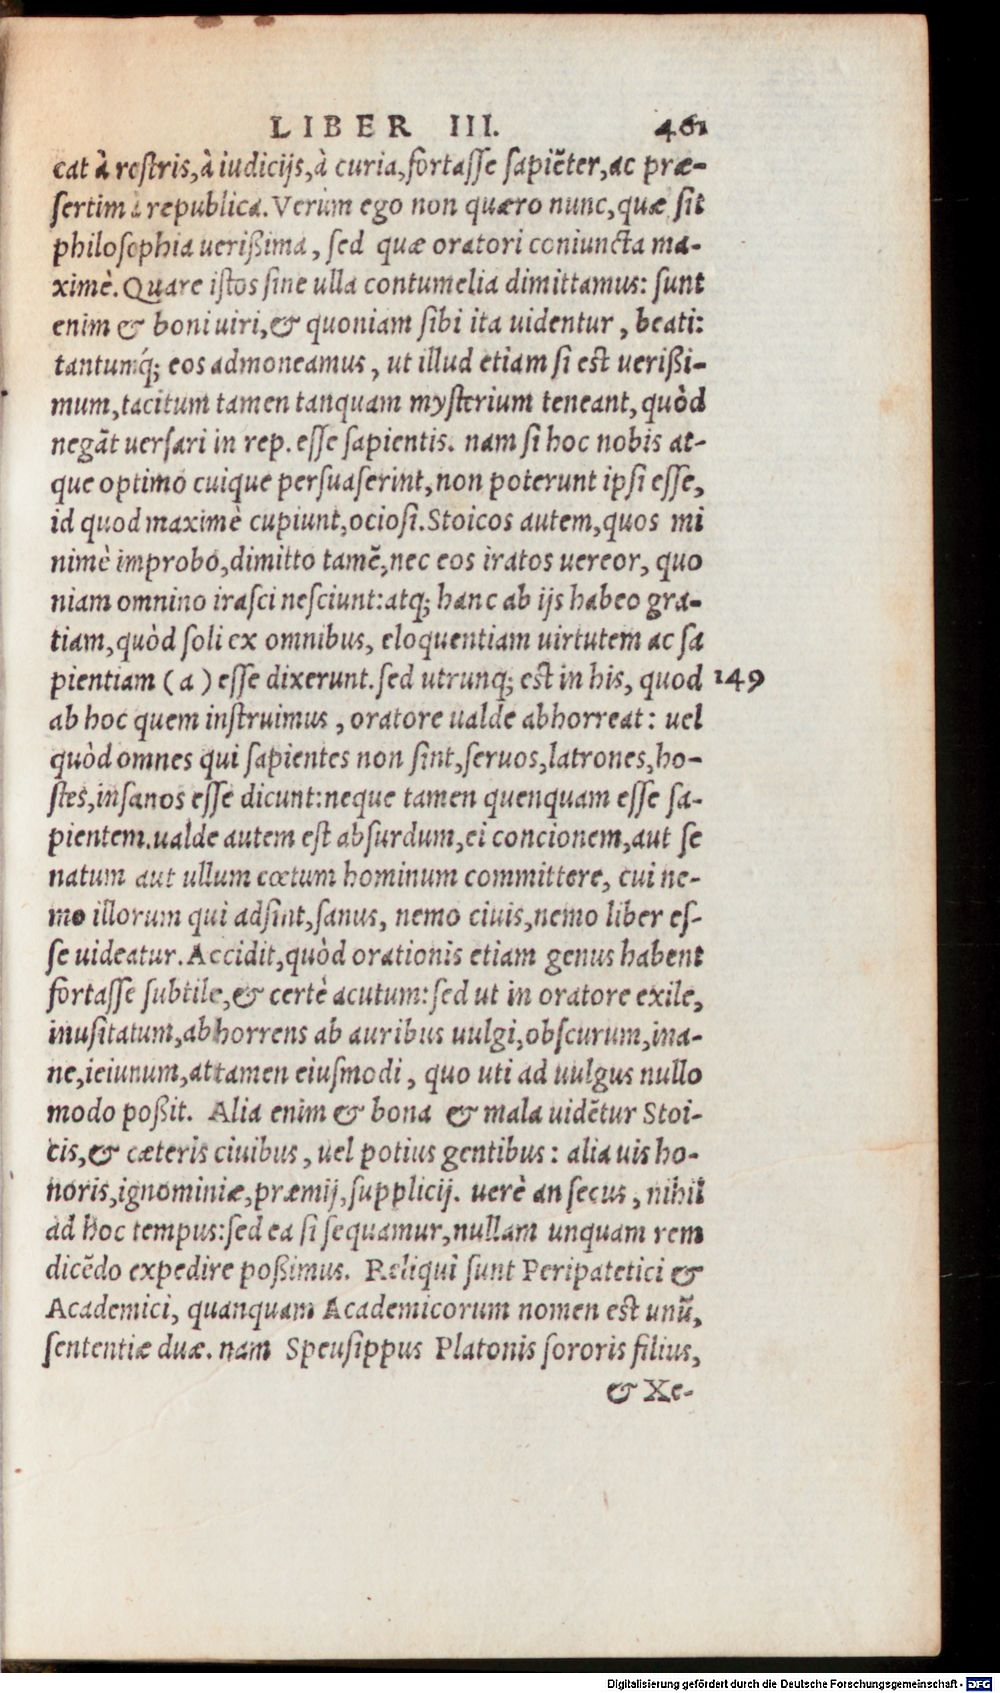 LIBER III. 461
cat à rostris, à iudicijs, à curia, fortasse sapiẽter, ac præ-
sertim à republica. Verùm ego non quæro nunc, quæ sit
philosophia uerißima, sed quæ oratori coniuncta ma-
ximè. Quare istos sine ulla contumelia dimittamus: sunt
enim & boni uiri, & quoniam sibi ita uidentur, beati:
tantumq́; eos admoneamus, ut illud etiam si est uerißi-
mum, tacitum tamen tanquam mysterium teneant, quòd
negãt uersari in rep. esse sapientis. nam si hoc nobis at-
que optimo cuique persuaserint, non poterunt ipsi esse,
id quod maximè cupiunt, ociosi. Stoicos autem, quos mi
nimè improbo, dimitto tamẽ, nec eos iratos uereor, quo
niam omnino irasci nesciunt: atq; hanc ab ijs habeo gra-
tiam, quòd soli ex omnibus, eloquentiam uirtutem ac sa
pientiam (a) esse dixerunt. sed utrunq; est in his, quod 149
ab hoc quem instruimus, oratore ualde abhorreat: uel
quòd omnes qui sapientes non sint, seruos, latrones, ho-
stes, insanos esse dicunt: neque tamen quenquam esse sa-
pientem. ualde autem est absurdum, ei concionem, aut se
natum aut ullum cœtum hominum committere, cui ne-
mo illorum qui adsint, sanus, nemo ciuis, nemo liber es-
se uideatur. Accidit, quòd orationis etiam genus habent
fortasse subtile, & certè acutum: sed ut in oratore exile,
inusitatum, abhorrens ab auribus uulgi, obscurum, ina-
ne, ieiunum, attamen eiusmodi, quo uti ad uulgus nullo
modo poßit. Alia enim & bona & mala uidẽtur Stoi-
cis, & cæteris ciuibus, uel potius gentibus: alia uis ho-
noris, ignominiæ, præmij, supplicij. uerè an secus, nihil
ad hoc tempus: sed ea si sequamur, nullam unquam rem
dicẽdo expedire poßimus. Reliqui sunt Peripatetici &
Academici, quanquam Academicorum nomen est unũ,
sententiæ duæ. nam Speusippus Platonis sororis filius,
& Xe-
Digitalisierung gefördert durch die Deutsche Forschungsgemeinschaft - DFG